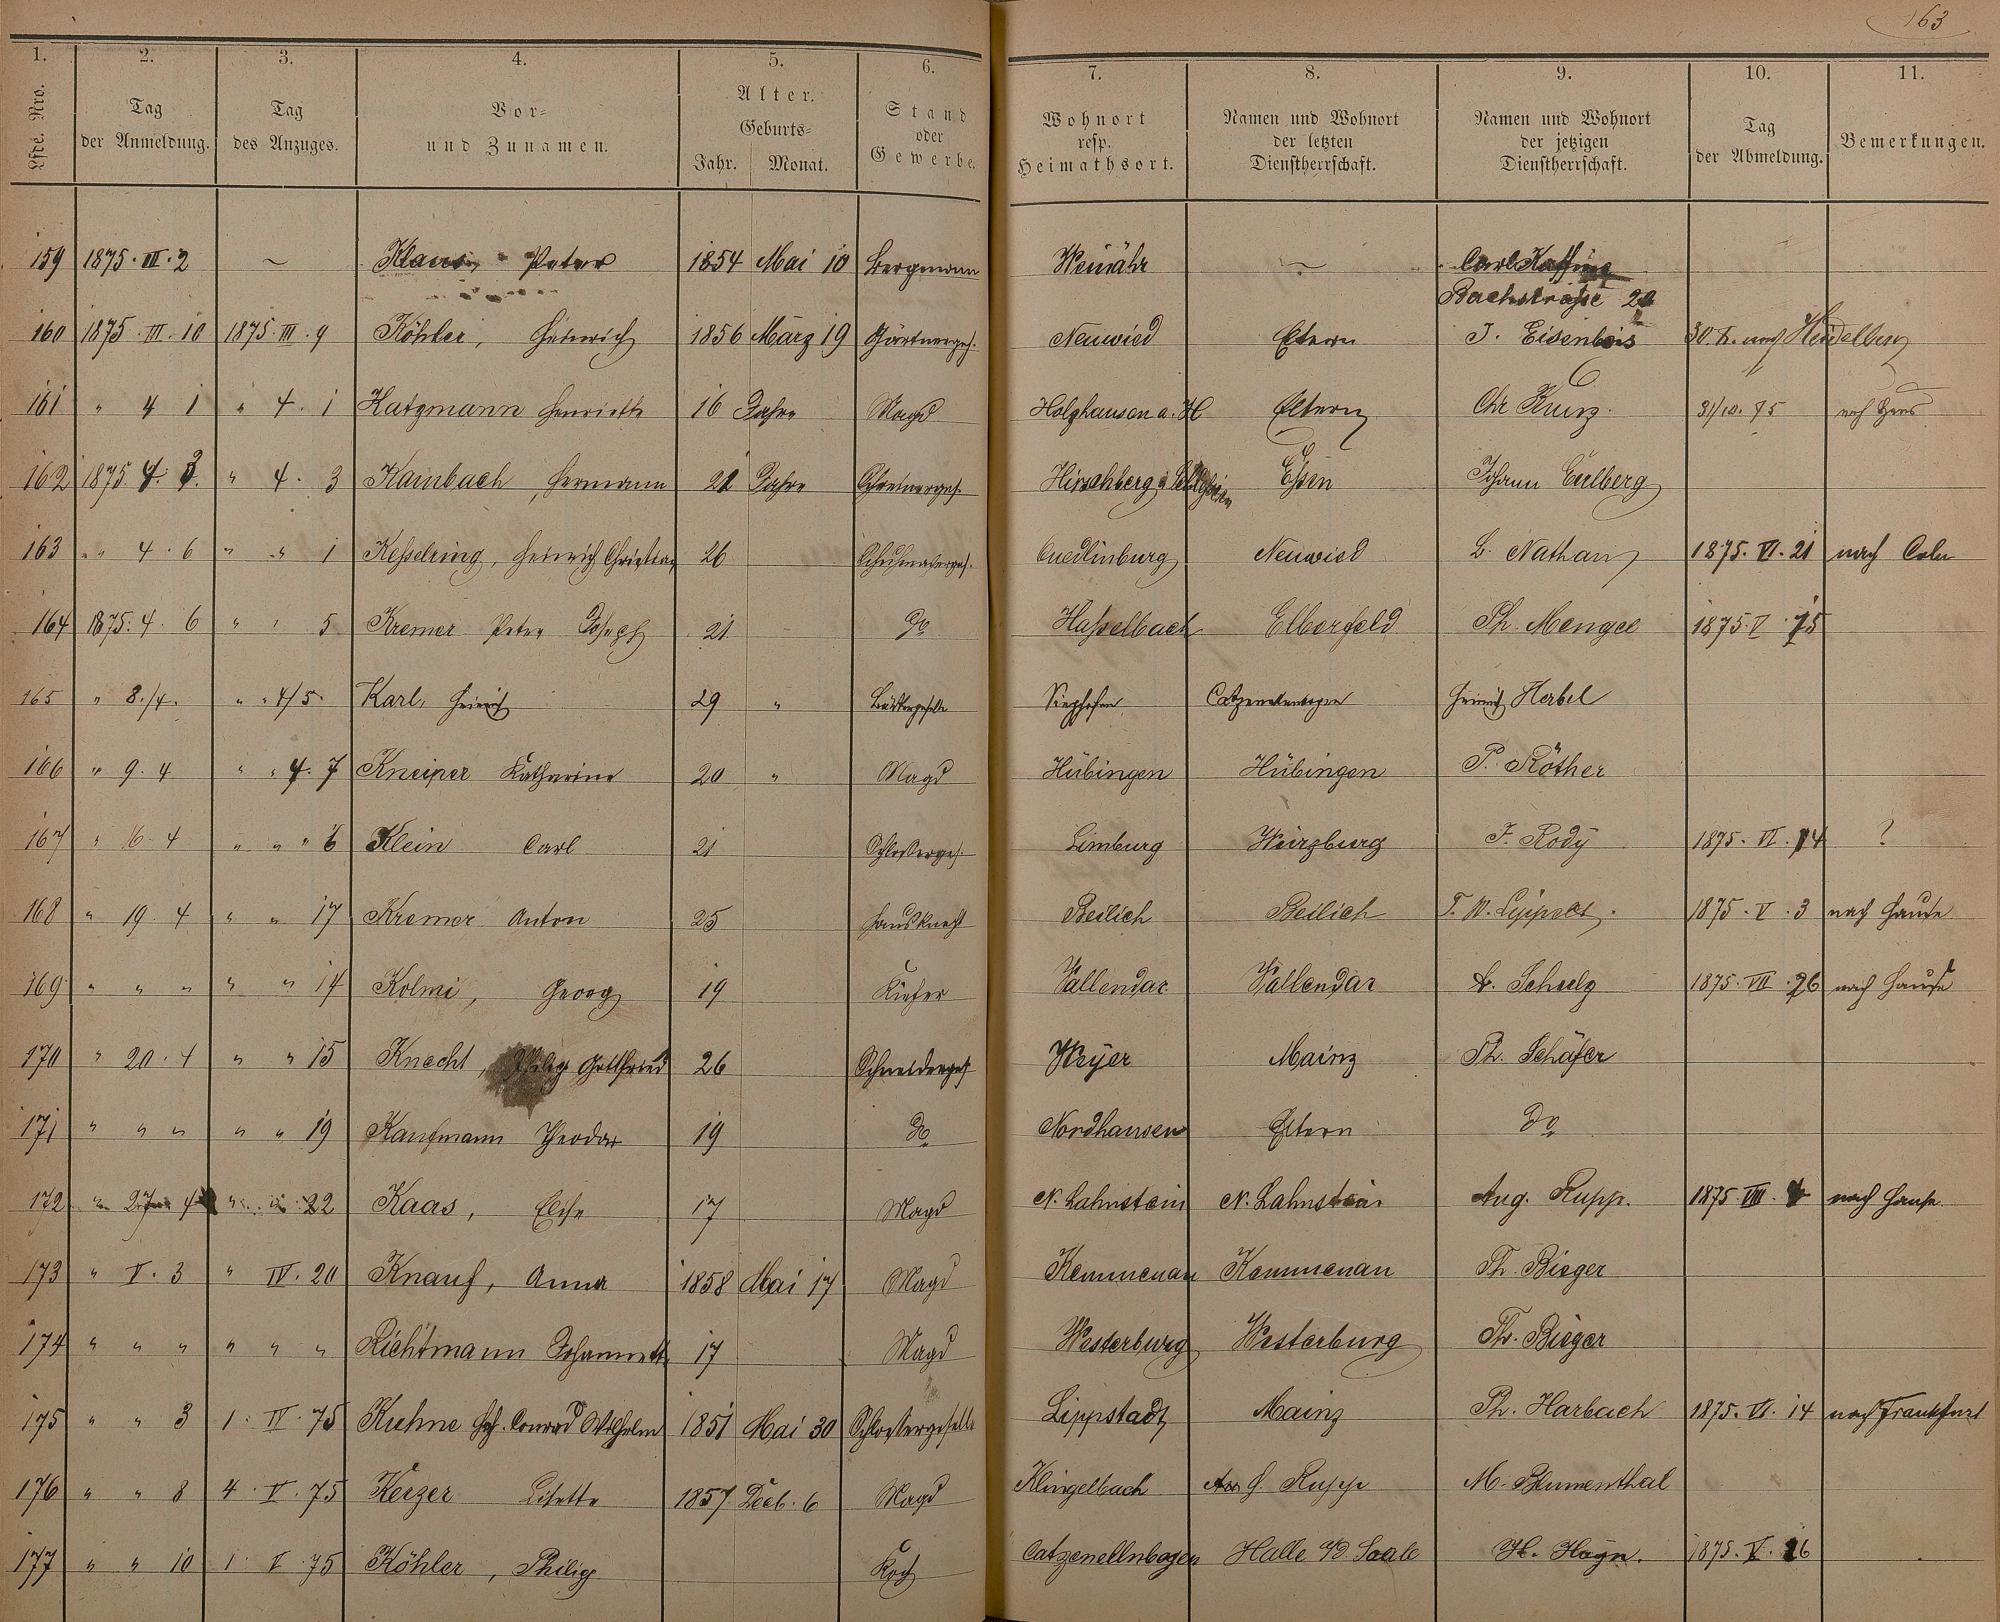 163
1. 2. 3. 4. 5. 6. 7. 8. 9. 10. 11.
Lfde. Nro. | Tag der Anmeldung. | Tag des Anzuges. | Vor- und Zunamen. | Alter. Geburts- Jahr. Monat. | Stand oder Gewerbe. | Wohnort resp. Heimathsort. | Namen und Wohnort der letzten Dienstherrschaft. | Namen und Wohnort der jetzigen Dienstherrschaft. | Tag der Abmeldung. | Bemerkungen.
159 1875. III. 2 ~ Klaus, Peter 1854 Mai 10 Bergmann Weinähr ~ Carl
Bachstraße
160 1875. III. 10 1875. III. 9 Köhler, Heinrich 1856 März 19 Gärtnerges. Neuwied Eltern J. Eisenbeis nach Heidelberg
161 " 4 1 " 4. 1 Hatzmann Henriette 16 Jahre Magd Holzhausen a. H Eltern Chr Kunz. 31/10. 75
162 1875 4. 3. " 4. 3 Kambach, Hermann 21 Jahre Schreinerges. Hirschberg Essen Johann Eulberg
163 " " 4. 6 " " 1 Kesselring, Heinrich Christian 26 Schuhmacherges. Quedlinburg Neuwied L. Nathan 1875. VI. 21 nach Cöln
164 1875. 4. 6 " " 5 Kremer Peter Joseph 21 do Hasselbach Elberfeld Ph. Mengel 1875. V. 15
165 " 8./4. " " 4/5 Karl, Heinrich 29 " Catzenelnbogen Heinrich Herbel
166 " 9. 4 " " 4. 7 Kneiper Katharine 20 " Magd Hübingen Hübingen P. Röther
167 " 16. 4 " " " 6 Klein Carl 21 Schlosserges. Limburg Würzburg F. Rody 1875. VI. 14 ?
168 " 19. 4 " " 17 Kremer Anton 25 Hausknecht Beilich Beilich F. W. Lippelt. 1875. V. 3 nach Hause
169 " " " " " 14 Kolmi, Georg 19 Kiefer Vallendar Vallendar Schulz 1875. VII. 26 nach Hause
170 " 20. 4 " " 15 Knecht, Philip Gottfried 26 Schneiderges. Weyer Mainz Ph. Schäfer
171 " " " " " 19 Kaufmann Theodor 19 do Nordhausen Eltern do
172 " 27. 4 " " 22 Kaas, Elise 17 Magd N. Lahnstein N. Lahnstein Aug. Rupp. 1875. VIII. nach Hause.
173 " V. 3 " IV. 20 Knauf, Anna 1858 Mai 17 Magd Kemmenau Kemmenau Th. Bieger
174 " " " " " " Richtmann Johannette 17 Magd Westerburg Westerburg Th. Bieger
175 " " 3 1. IV. 75 Kuhne Joh. Conrad Wilhelm 1851 Mai 30 Schlossergeselle Lippstadt Mainz Ph. Harbach 1875. VI. 14 nach Frankfurt
176 " " 8 4. V. 75 Keizer Lisette 1857 Decb. 6 Magd Klingelbach Rupp M. Blumenthal
177 " " 10 1. V. 75 Köhler, Philip Koch Catzenellnbogen Halle a/d Saale H. Hayn. 1875. V. 26